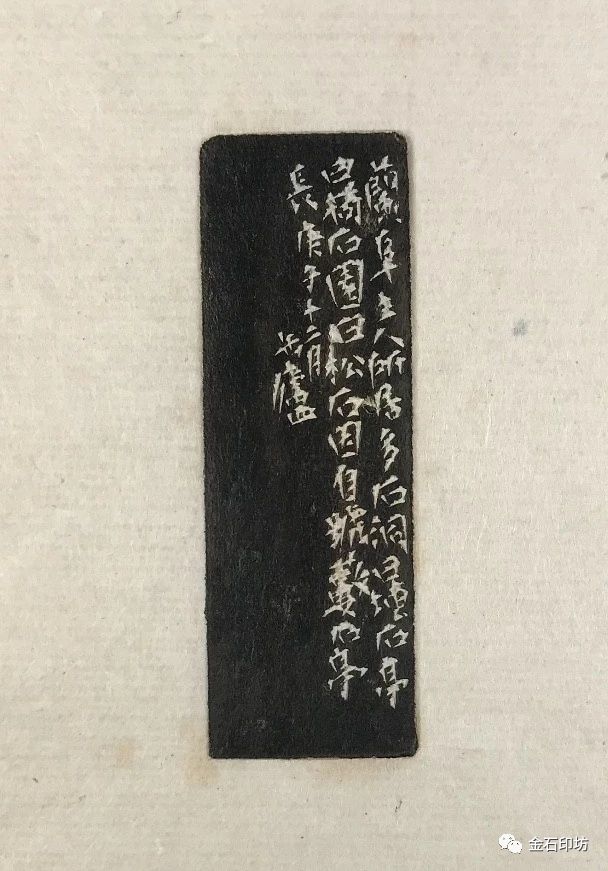 蘭阜主人所居多石洞曰石亭
曰橋石園曰松石因自號石亭
長庚子十二月
缶廬
金石印坊